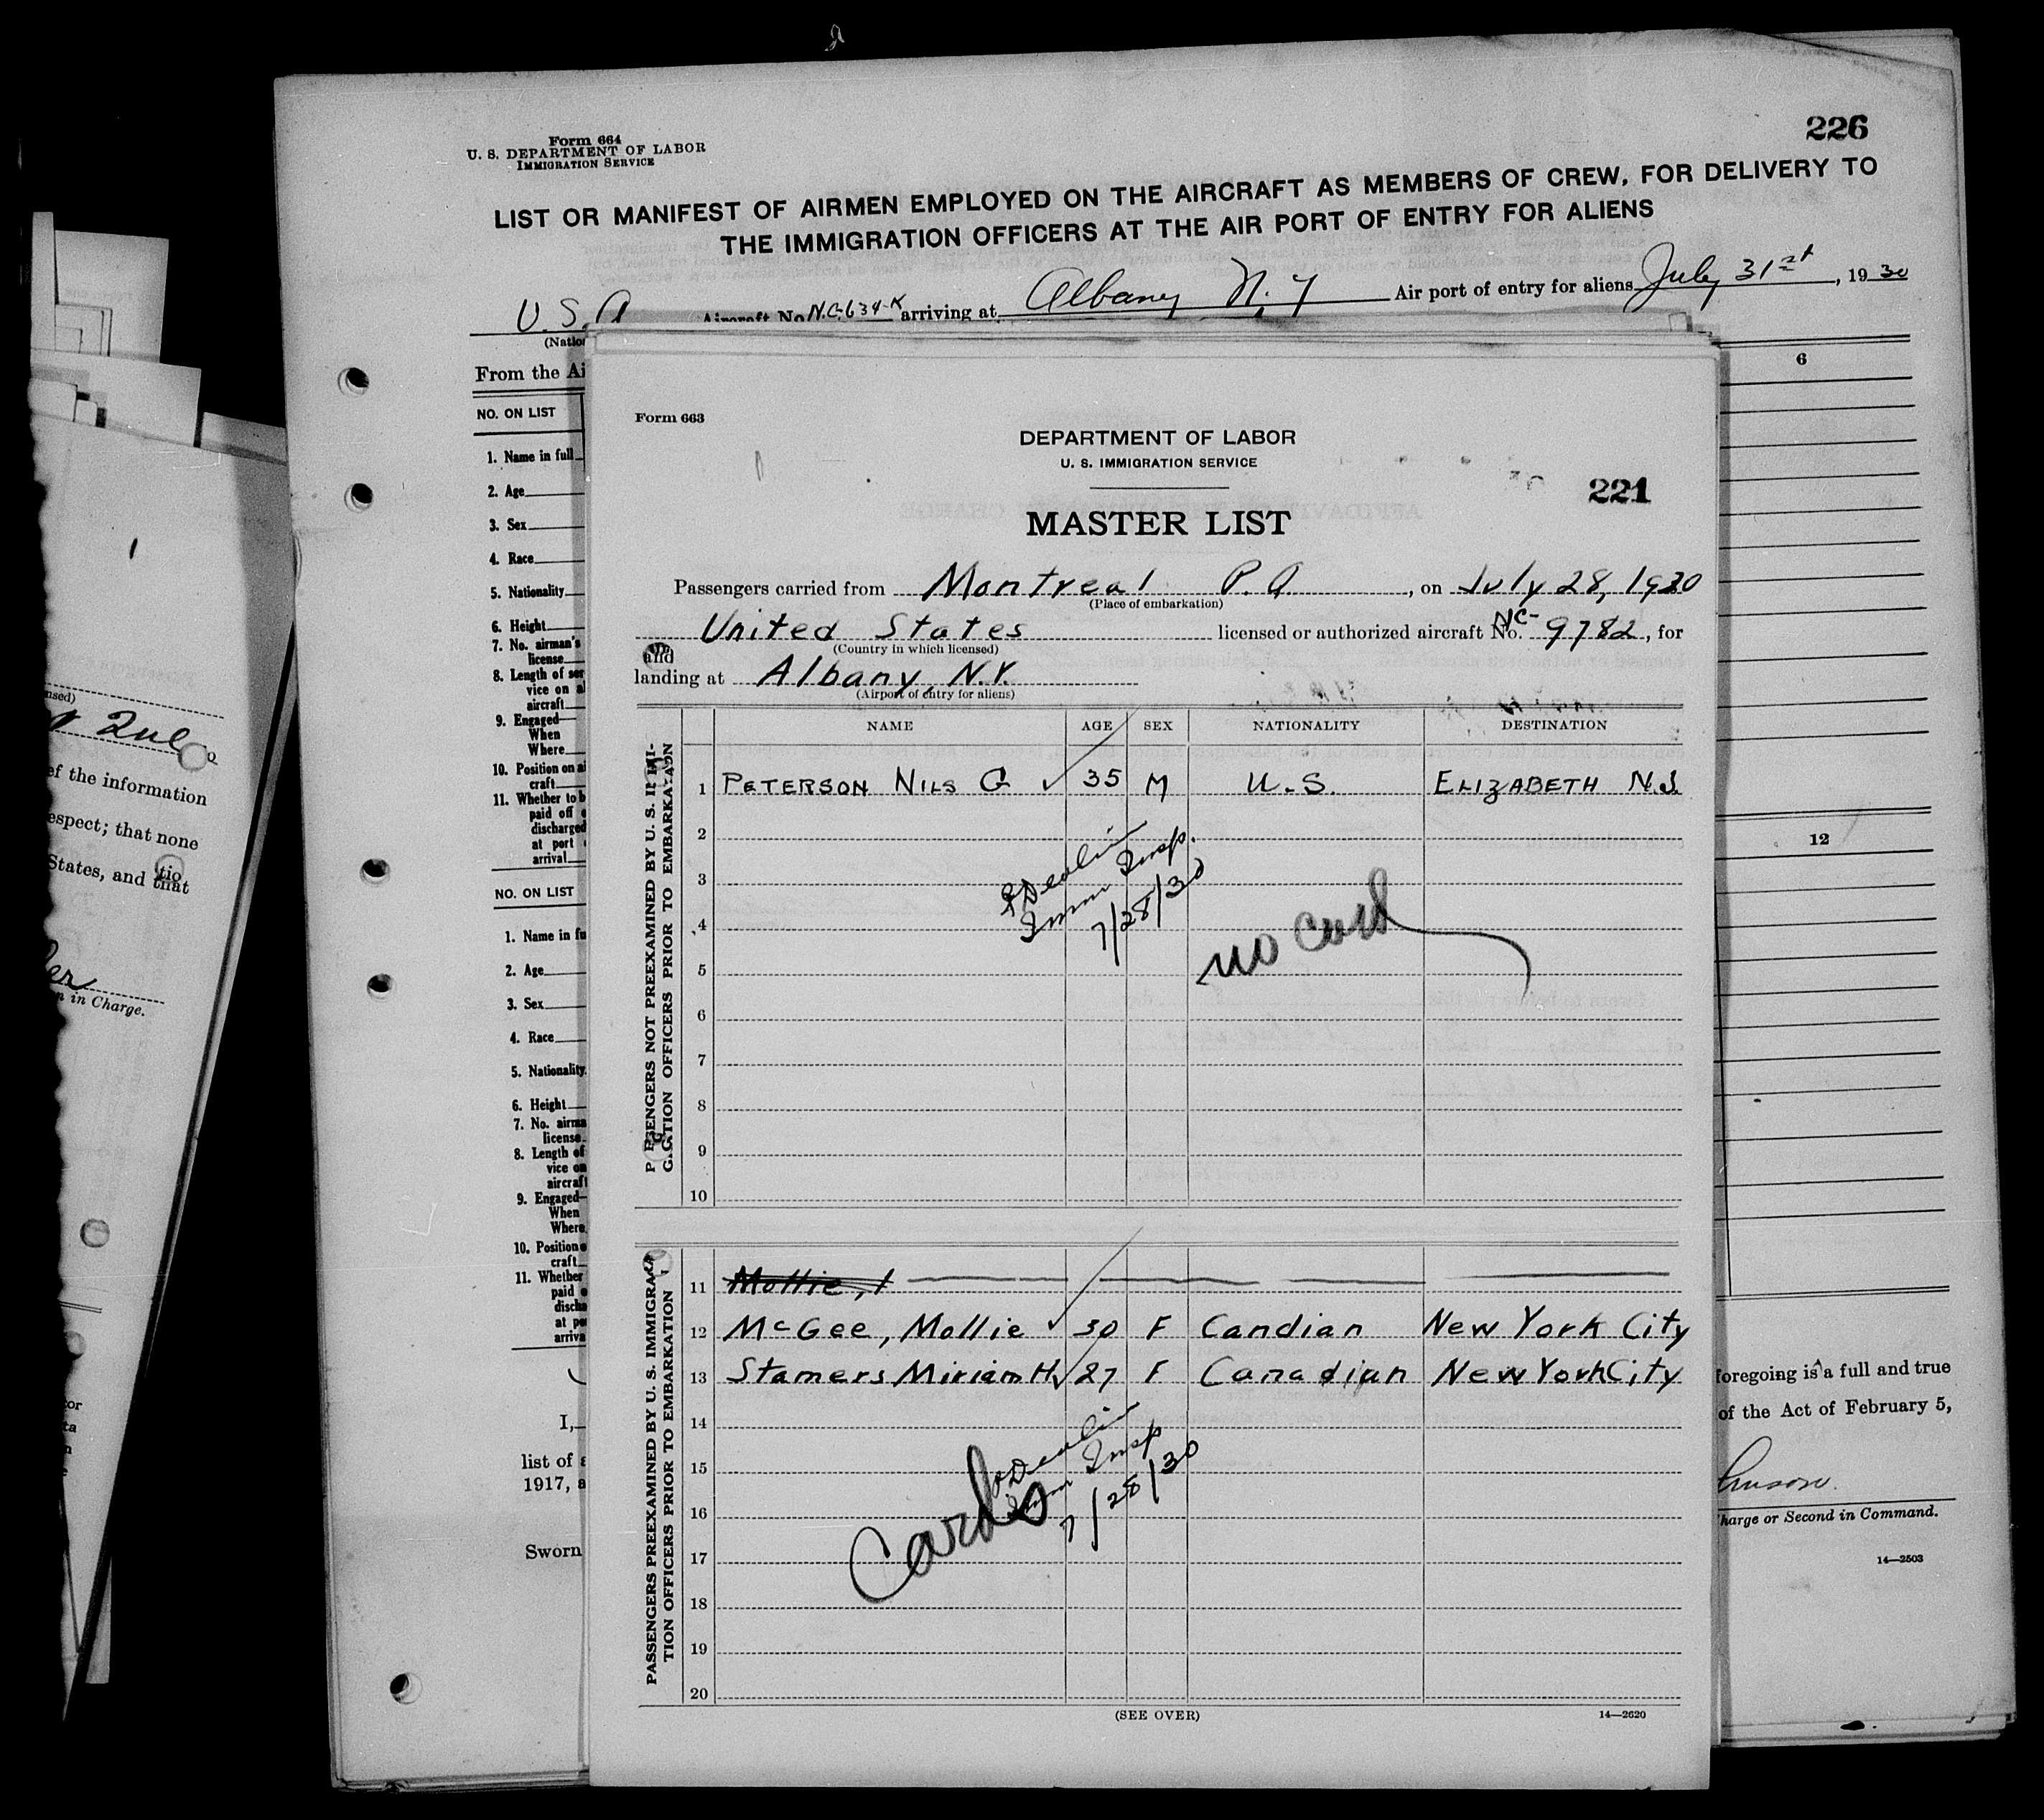 226
Form 664
U. S. DEPARTMENT OF LABOR
IMMIGRATION SERVICE
LIST OR MANIFEST OF AIRMEN EMPLOYED ON THE AIRCRAFT AS MEMBERS OF CREW, FOR DELIVERY TO
THE IMMIGRATION OFFICERS AT THE AIR PORT OF ENTRY FOR ALIENS
U.S.A Aircraft No. N.C-634-K arriving at Albany N.Y Air port of entry for aliens July 31st, 1930
From the
NO. ON LIST
6
1. Name in full
2. Age
3. Sex
4. Race
5. Nationality
6. Height
7. No. airman's
license
8. Length of ser
vice on
aircraft
9. Engaged—
When
Where
10. Position on
craft
11. Whether to b
paid off
discharged
at port
arrival
NO. ON LIST
12
1. Name in fu
2. Age
3. Sex
4. Race
5. Nationality
6. Height
7. No. airma
license
8. Length of
vice on
aircraft
9. Engaged—
When
Where
10. Position
craft
11. Whether
paid
discha
at po
arriva
I,
foregoing is a full and true
list of
of the Act of February 5,
1917, a
Sworn
harge or Second in Command.
14—2503
Form 663
DEPARTMENT OF LABOR
U. S. IMMIGRATION SERVICE
221
MASTER LIST
Passengers carried from Montreal P.Q., on July 28, 1930
(Place of embarkation)
United States licensed or authorized aircraft No. NC-9782, for
(Country in which licensed)
and
landing at Albany, N.Y.
(Airport of entry for aliens)
NAME AGE SEX NATIONALITY DESTINATION
PASSENGERS NOT PREEXAMINED BY U. S. IMMI-
GRATION OFFICERS PRIOR TO EMBARKATION
1 PETERSON NILS G ✓ 35 M U.S. ELIZABETH N.J.
2
3
4
5
6
7
8
9
10
Devlin
Imm Insp.
7/28/30
no card
PASSENGERS PREEXAMINED BY U. S. IMMIGRA-
TION OFFICERS PRIOR TO EMBARKATION
11 Mollie, 1
12 McGee, Mollie ✓ 30 F Candian New York City
13 Stamers Miriam H ✓ 27 F Canadian New York City
14
15
16
17
18
19
20
Devlin
Imm Insp
7/28/30
Cards
(SEE OVER)
14—2620
nsed)
ef the information
espect; that none
States, and that
n in Charge.